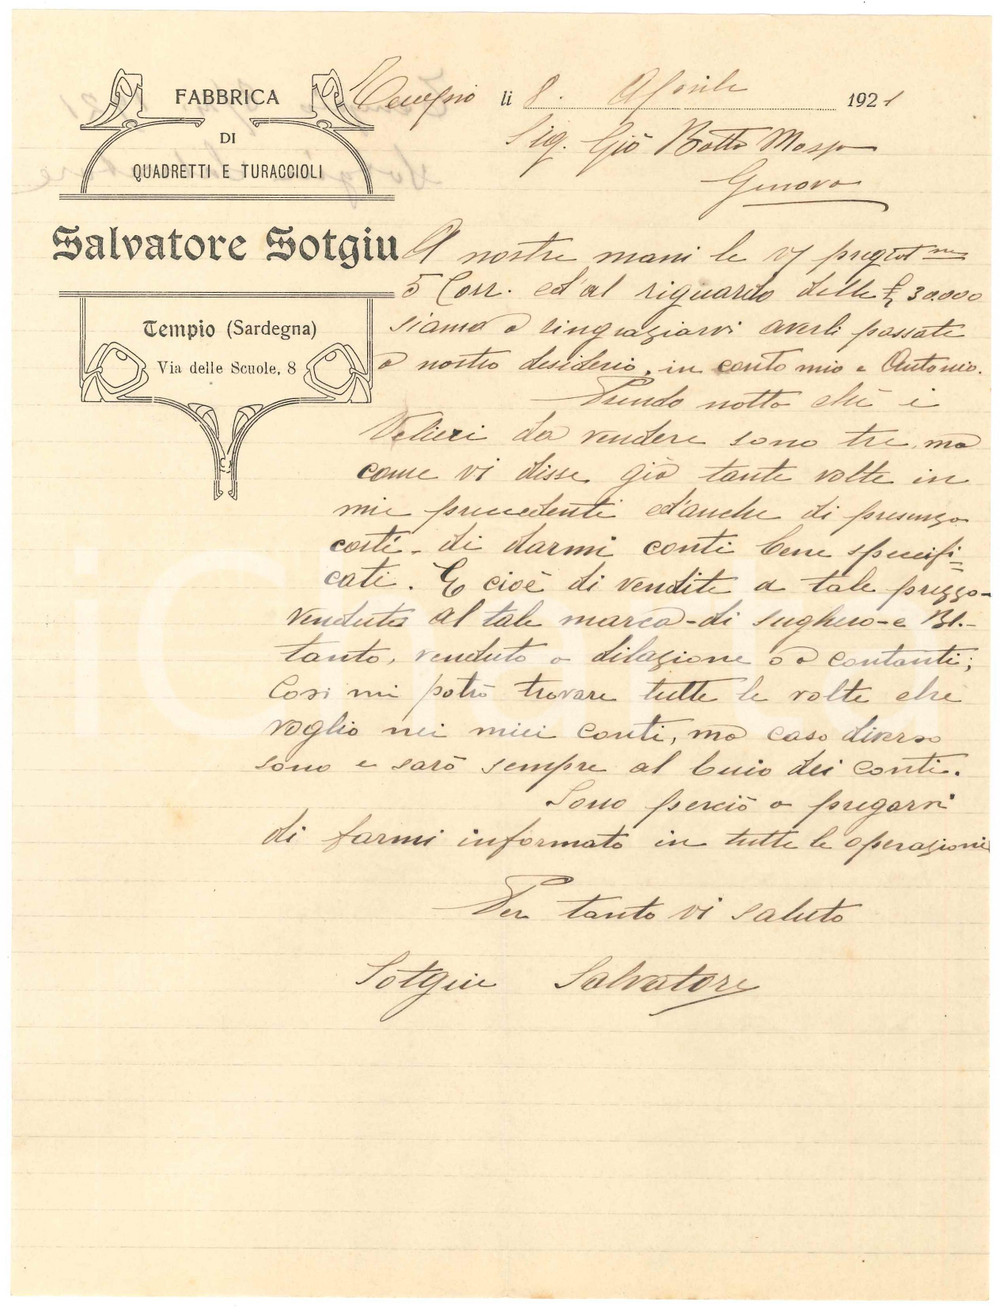 FABBRICA
DI
QUADRETTI E TURACCIOLI
Salvatore Sotgiu
Tempio (Sardegna)
Via delle Scuole, 8
Tempio li 8. Aprile 1921
Sig. Giò Botto
Genova
A nostre mani le
5 Corr. ed'al riguardo delle £ 30.000
siamo a ringraziarvi averli passate
a nostro desiderio, in conto mio e Antonio.
Prendo notto chè i
Velieri da vendere sono tre, ma
come vi disse già tante volte in
mie precedenti ed'anche di presenza
costì - di darmi conti bene specifi=
cati. E cioè di vendite a tale prezzo-
venduta al tale marca - di sughero - e
tanto, venduto a dilazione o a contanti;
Cosi mi potrò trovare tutte le volte che
voglio nei miei conti, ma caso diverso
sono e sarò sempre al buio dei conti.
Sono perciò a pregarvi
di farmi informato in tutte le operazioni
Per tanto vi saluto
Sotgiu Salvatore
iCharta